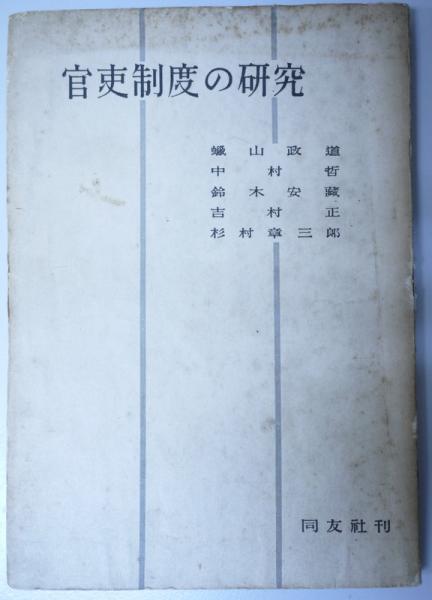 官吏制度の研究
蠟山政道
中村哲
鈴木安藏
吉村正
杉村章三郎
同友社刊